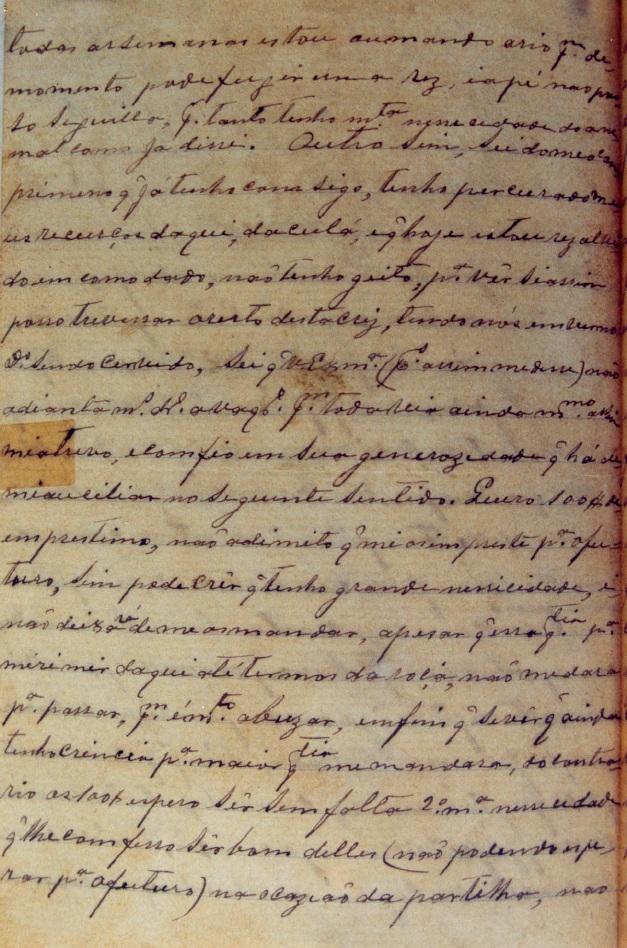 todas as semanas estou aumando ario q.^m de
momento pode fugir uma rez, eapé não pos-
so seguilla, q. tanto tenho m.^ta nessecidade do ani
mal como já disse. Outro sim, sei do
primeno q̂ já tenho com sigo, tenho percurado me
us recurços daqui, daculá, e q̂ hoje estou
do em comodado, não tenho geito, p.^a vêr si assim
posso trevessar o resto desta criz, tendo nós
D.^s sendo cervido, Sei q̂ V Ex m.^a (p.^s assim me disse) não
adianta m.^s dr.^o q.^m todavia ainda m.^mo assim
mi atrevo, e comfio em sua generozedade q̂ há de
mi auciliar no seguente sentido. Quero 100\$ de
emprestimo, não adimito q̂ mi os impreste p.^a o fu-
turo, sim pode crêr q̂ tenho grande nessicidade, e
não deixar.^á de me os mandar, apesar q̂ essa q.^tia p.^a
mi rimir daqui até termos da roça, não me dara
p.^a passar, q.^m é m.^to abuzar, emfim q̂ se vêr q̂ ainda
tenho crincia p.^a maior q.^tia me mandara, do contra
rio os 100\$ espero sêr sem falta 2.^o m.^a nessecidade
q̂ lhe comfesso sêr bom delles (não podendo espe-
rar p.^a o futuro) na ocazião da partilha, não